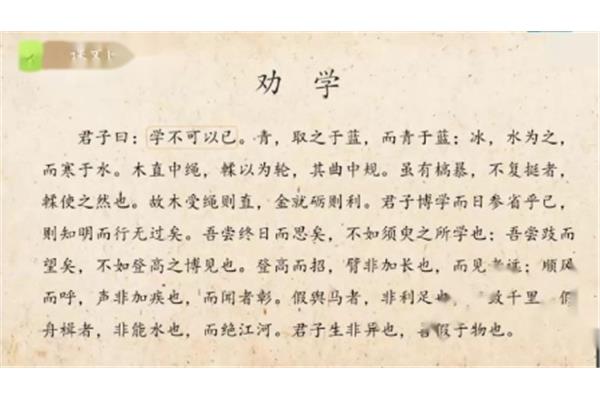 劝学
君子曰：学不可以已。青，取之于蓝，而青于蓝；冰，水为之，
而寒于水。木直中绳，輮以为轮，其曲中规。虽有槁暴，不复挺者，
輮使之然也。故木受绳则直，金就砺则利。君子博学而日参省乎己，
则知明而行无过矣。吾尝终日而思矣，不如须臾之所学也；吾尝跂而
望矣，不如登高之博见也。登高而招，臂非加长也，而见者远；顺风
而呼，声非加疾也，而闻者彰。假舆马者，非利足也，致千里
舟楫者，非能水也，而绝江河。君子生非异也，善假于物也。